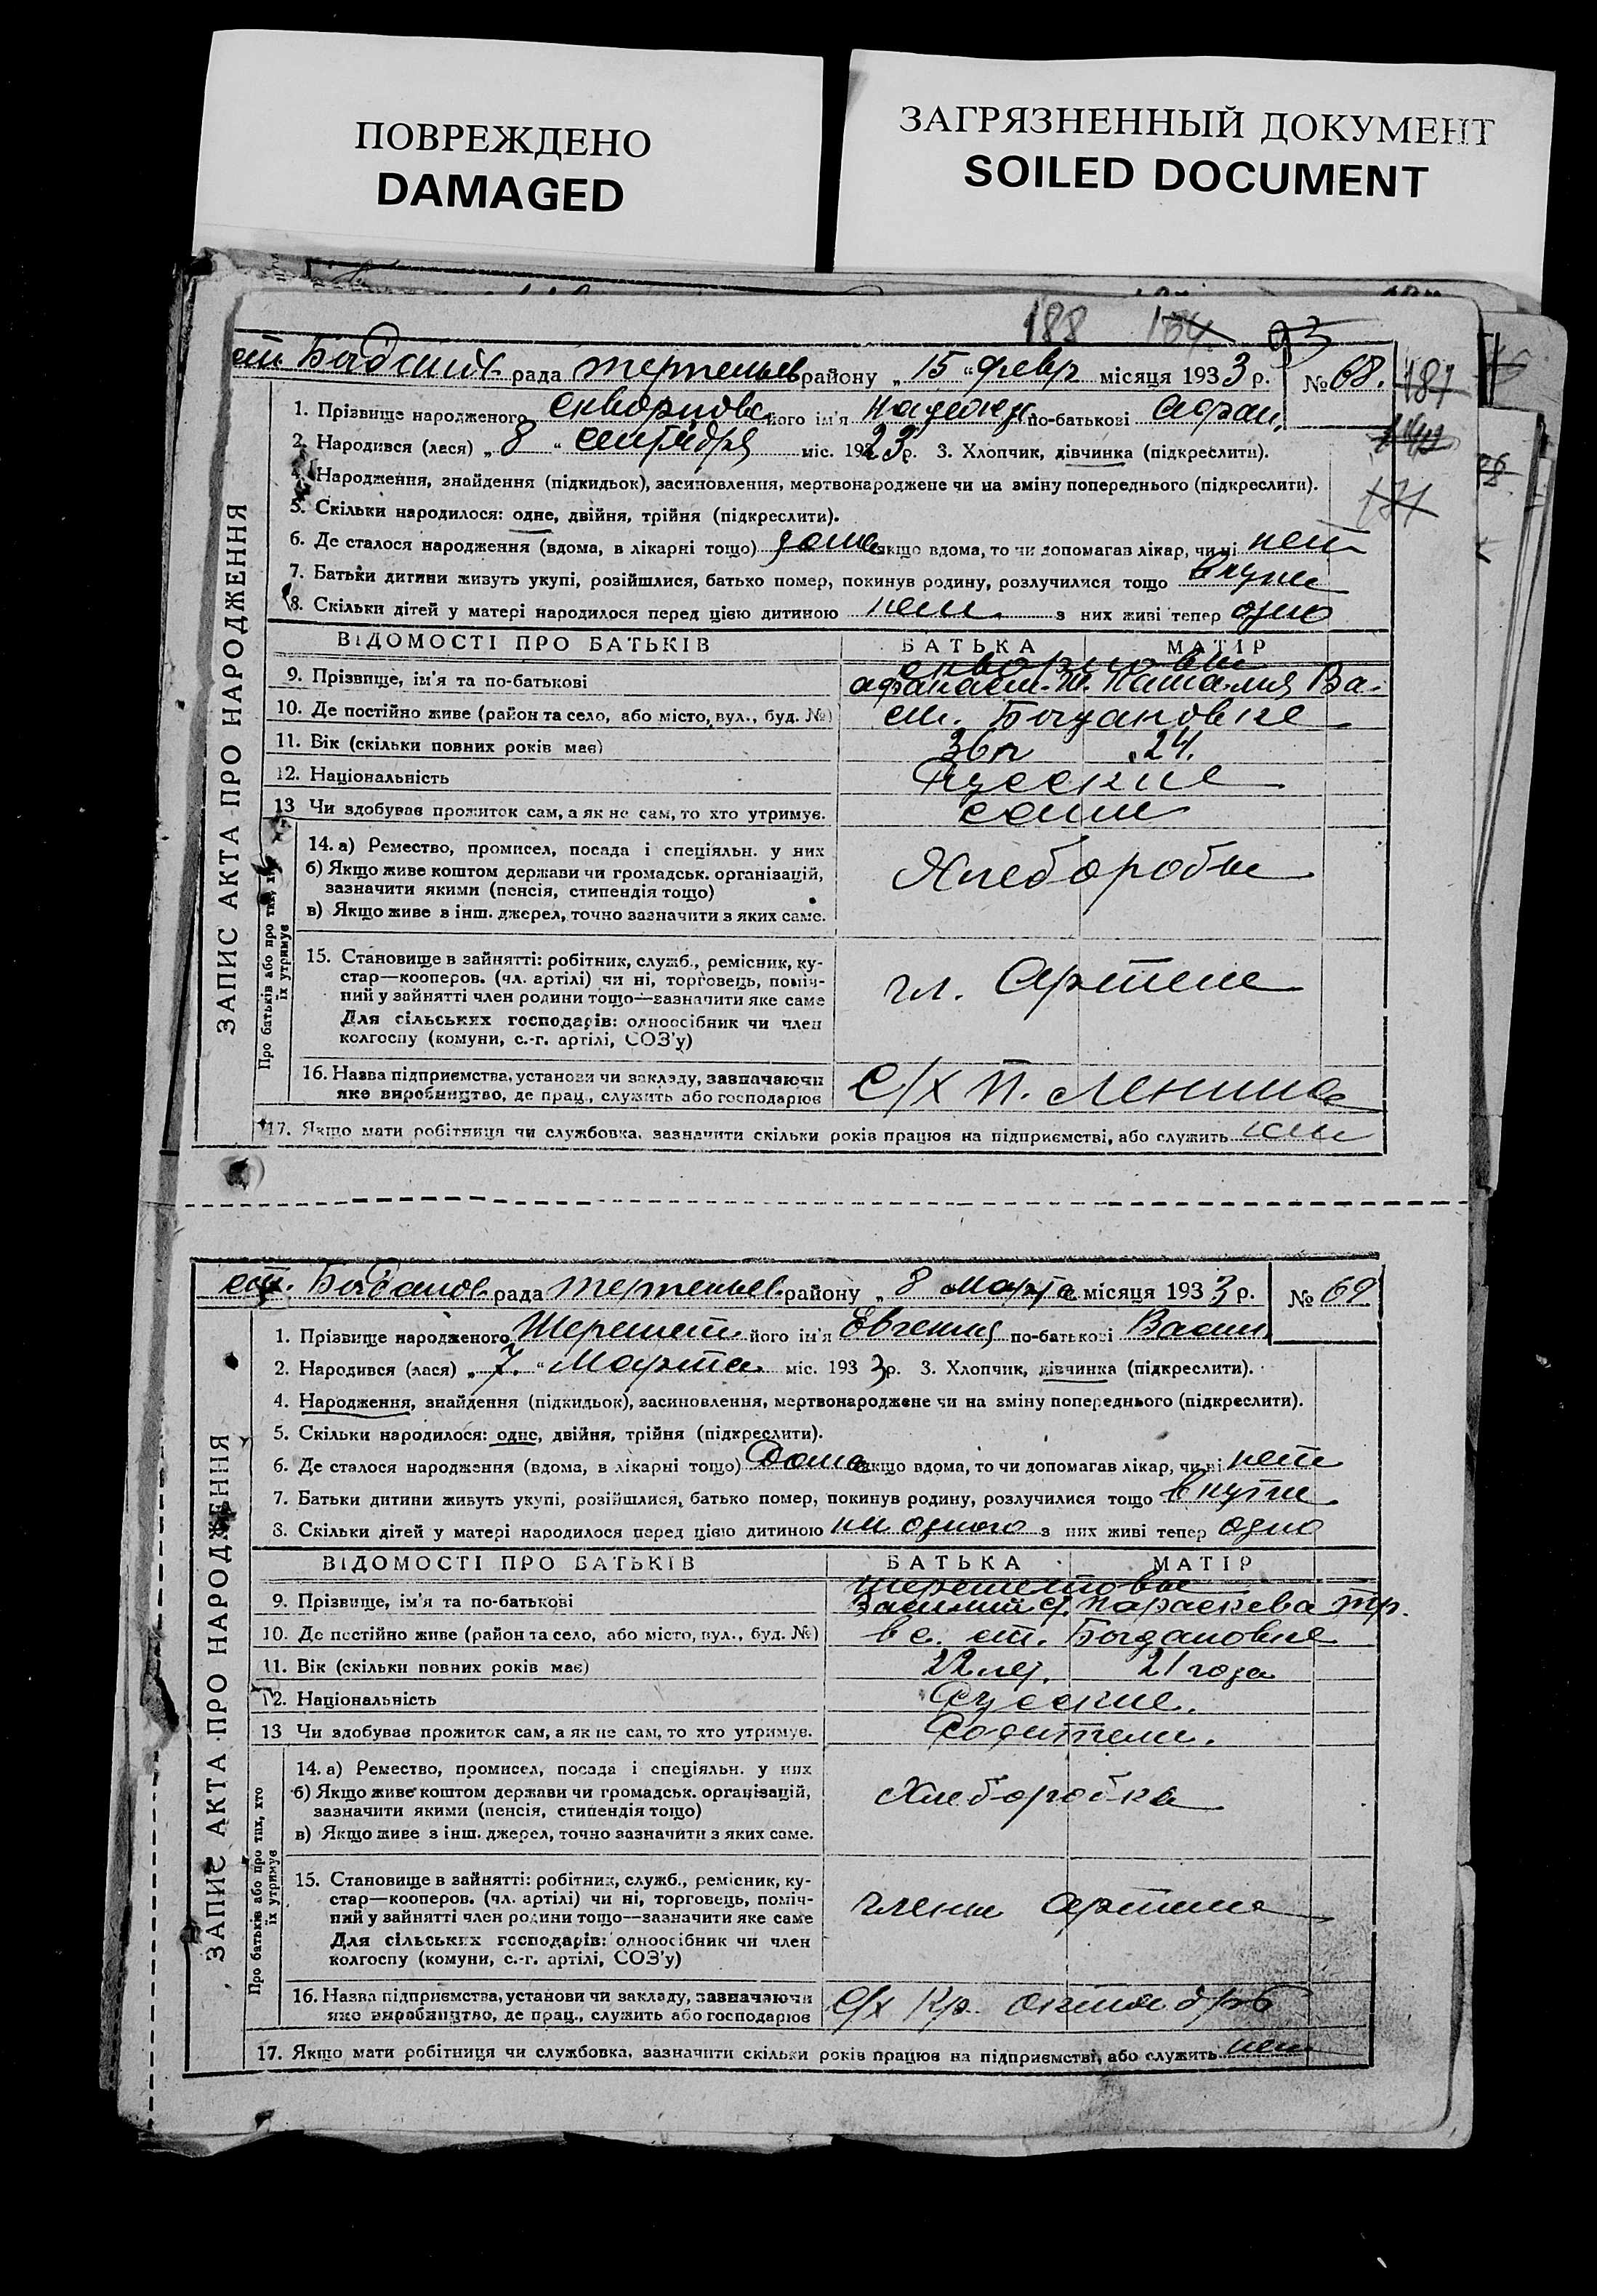 ПОВРЕЖДЕНО
DAMAGED
ЗАГРЯЗНЕННЫЙ ДОКУМЕНТ
SOILED DOCUMENT
188
ЗАПИС АКТА ПРО НАРОДЖЕННЯ
рада району „ 15 “ февр місяця 1933 р. № 68.
187
1. Прізвище народженого Скворцова його ім'я Надежда по-батькові Афан.
2. Народився (лася) „ 8 “ сентября міс. 1923 р. 3. Хлопчик, дівчинка (підкреслити).
4. Народження, знайдення (підкидьок), засиновлення, мертвонароджене чи на зміну попереднього (підкреслити).
5. Скільки народилося: одне, двійня, трійня (підкреслити).
6. Де сталося народження (вдома, в лікарні тощо) дома якщо вдома, то чи допомагав лікар, чи ні нет
7. Батьки дитини живуть укупі, розійшлися, батько помер, покинув родину, розлучилися тощо вкупе
8. Скільки дітей у матері народилося перед цією дитиною нет з них живі тепер одно
ВІДОМОСТІ ПРО БАТЬКІВ БАТЬКА МАТІР
9. Прізвище, ім'я та по-батькові Скворцовы
Наталия Ва.
10. Де постійно живе (район та село, або місто, вул., буд. №) ст. Богдановке
11. Вік (скільки повних років має) 36 л 24.
12. Національність Русские
13 Чи здобував прожиток сам, а як не сам, то хто утримує. сами
Про батьків або про тих, хто їх утримує
14. а) Ремество, промисел, посада і спеціяльн. у них
б) Якщо живе коштом держави чи громадськ. організацій,
зазначити якими (пенсія, стипендія тощо)
Хлеборобы
в) Якщо живе з інш. джерел, точно зазначити з яких саме.
15. Становище в зайнятті: робітник, служб., ремісник, ку-
стар—кооперов. (чл. артілі) чи ні, торговець, поміч-
ний у зайнятті член родини тощо—зазначити яке саме
чл. Артеле
Для сільських господарів: одноосібник чи член
колгоспу (комуни, с.-г. артілі, СОЗ'у)
16. Назва підприємства, установи чи закладу, зазначаючи
яке виробництво, де прац., служить або господарює
С/х Ленина
17. Якщо мати робітниця чи службовка, зазначити скільки років працює на підприємстві, або служить нет
ЗАПИС АКТА ПРО НАРОДЖЕННЯ
ст. Богданов. рада району „ 8 Марта місяця 1933 р. № 69
1. Прізвище народженого його ім'я Евгения по-батькові Васил.
2. Народився (лася) „ 7. “ Марта міс. 1933 р. 3. Хлопчик, дівчинка (підкреслити).
4. Народження, знайдення (підкидьок), засиновлення, мертвонароджене чи на зміну попереднього (підкреслити).
5. Скільки народилося: одне, двійня, трійня (підкреслити).
6. Де сталося народження (вдома, в лікарні тощо) Дома якщо вдома, то чи допомагав лікар, чи ні нет
7. Батьки дитини живуть укупі, розійшлися, батько помер, покинув родину, розлучилися тощо вкупе
8. Скільки дітей у матері народилося перед цією дитиною ни одного з них живі тепер одно
ВІДОМОСТІ ПРО БАТЬКІВ БАТЬКА МАТІР
9. Прізвище, ім'я та по-батькові
Василий Параскева Тр.
10. Де постійно живе (район та село, або місто, вул., буд. №) ст. Богдановке
11. Вік (скільки повних років має) 22 лет. 21 года
12. Національність Русские.
13 Чи здобував прожиток сам, а як не сам, то хто утримує. Родители.
Про батьків або про тих, хто їх утримує
14. а) Ремество, промисел, посада і спеціяльн. у них
б) Якщо живе коштом держави чи громадськ. організацій,
зазначити якими (пенсія, стипендія тощо)
в) Якщо живе з інш. джерел, точно зазначити з яких саме.
15. Становище в зайнятті: робітник, служб., ремісник, ку-
стар—кооперов. (чл. артілі) чи ні, торговець, поміч-
ний у зайнятті член родини тощо—зазначити яке саме
члены
Для сільських господарів: одноосібник чи член
колгоспу (комуни, с.-г. артілі, СОЗ'у)
16. Назва підприємства, установи чи закладу, зазначаючи
яке виробництво, де прац., служить або господарює
С/х Кр. октябрь
17. Якщо мати робітниця чи службовка, зазначити скільки років працює на підприємстві, або служить нет